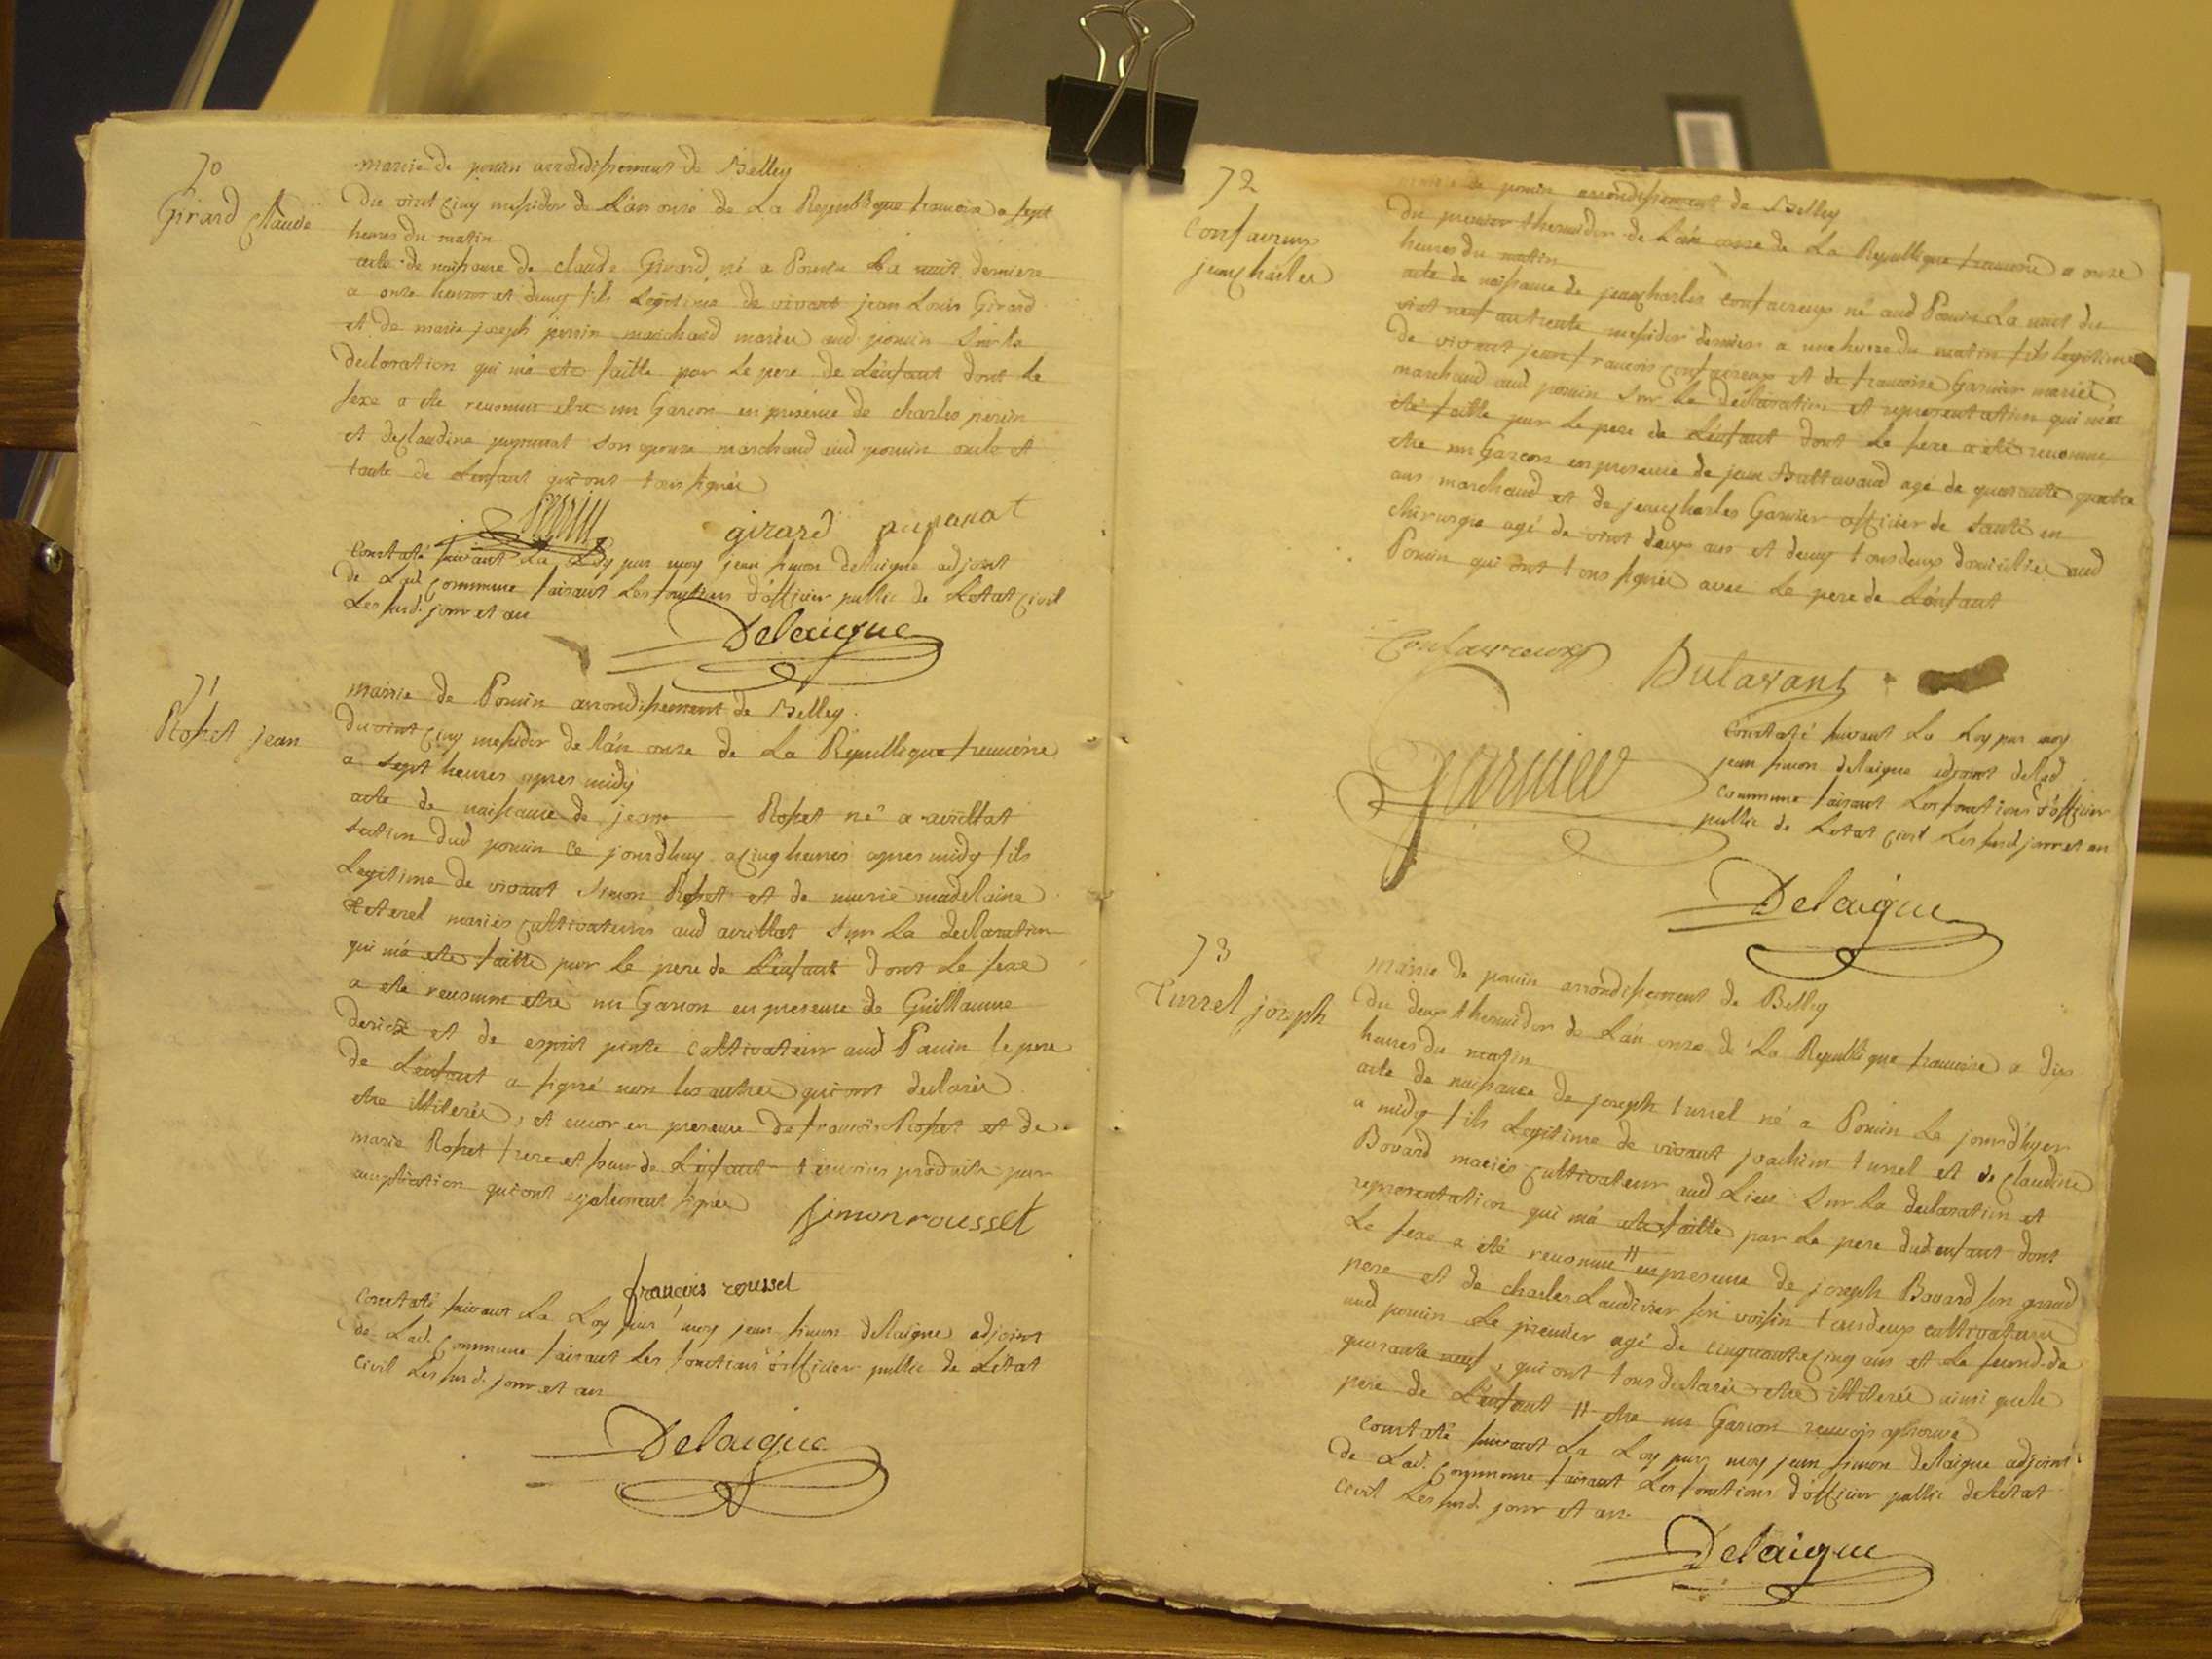 70
Girard Claude
mairie de pouin arrondissement de Belley
Du vint cinq messidor de L'an onze de La Republique francoise a sept
heures du matin
acte de naissance de claude Girard né a Pouin La nuit derniere
a onze heures et demy fils Legitime de vivant jean Louis Girard
et de marie joseph perrin marchand mariés aud pouin Sur la
declaration qui m'a ete faitte par Le pere de L'enfant dont Le
sexe a ete reconnue etre un Garcon en presence de charles perin
et de claudine son epouse marchand aud pouin oncle et
tante de L'enfant qui ont tous signés
Perrin
girard pupunat
Constaté suivant La Loy par moy jean simon delaigue adjoint
de Lad. commune faisant Les fonctions d'officier public de L'etat civil
Les susd. jour et an
Delaigue
71
Rosset jean
mairie de Pouin arrondissement de Belley.
Du vint cinq messidor de L'an onze de La Republique francoise
a sept heures apres midy
acte de naissance de jean — Rosset né a avrillat
section dud pouin ce jourd'huy a cinq heures apres midy fils
Legitime de vivant Simon Rosset et de marie madelaine
mariés cultivateurs aud avrillat Sur La declaration
qui m'a ete faitte par Le pere de L'enfant dont Le sexe
a ete reconnu etre un Garcon en presence de Guillaume
et de esprit cultivateur aud Pouin le pere
de L'enfant a signé non les autres qui ont declarés
etre illiterés, et encor en presence de francois Rosset et de
marie Rosset frere et sœur de L'enfant temoins produits par
ampliation qui ont egalement signés
simon rousset
francois roussel
Constaté suivant La Loy par moy jean simon delaigue adjoint
de Lad. commune faisant Les fonctions d'officier public de L'etat
civil Les susd. jour et an
Delaigue
72
Confavreux
jean charles
mairie de pouin arrondissement de Belley
Du premier thermidor de L'an onze de La Republique francoise a onze
heures du matin
acte de naissance de jean charles confavreux né aud Pouin La nuit du
vint neuf au trente messidor dernier a une heure du matin fils legitime
de vivant jean francois confavreux et de francoise Garnier mariés
marchand aud pouin Sur La declaration et representation qui m'a
été faitte par Le pere de L'enfant dont Le sexe a été reconnue
etre un Garcon en presence de jean Buttavand agé de quarante quatre
ans marchand et de jean charles Garnier officier de santé en
chirurgie agé de vint deux ans et demy tous deux domiciliés aud
Pouin qui ont tous signés avec Le pere de L'enfant
Confavreux
Butavant
Garnier
Constaté suivant La Loy par moy
jean simon delaigue adjoint de Lad
commune faisant Les fonctions d'officier
public de L'etat civil Les susd jour et an
Delaigue
73
Turrel joseph
mairie de pouin arrondissement de Belley
Du deux thermidor de L'an onze de La Republique francoise a dix
heures du matin
acte de naissance de joseph turrel né a Pouin Le jour d'hyer
a midy fils Legitime de vivant joachim turrel et de claudine
Bovard mariés cultivateur aud Lieu Sur La declaration et
representation qui m'a ete faitte par Le pere dud enfant dont
Le sexe a été reconnue // en presence de joseph Bovard son grand
pere et de charles Laudivier son voisin tous deux cultivateurs
aud pouin Le premier agé de cinquante cinq ans et Le second de
quarante neuf, qui ont tous declarés etre illiterés ainsi que le
pere de L'enfant // etre un Garcon renvois aprouvé
Constaté suivant La Loy par moy jean simon delaigue adjoint
de Lad. commune faisant Les fonctions d'officier public de L'etat
civil Les susd. jour et an.
Delaigue